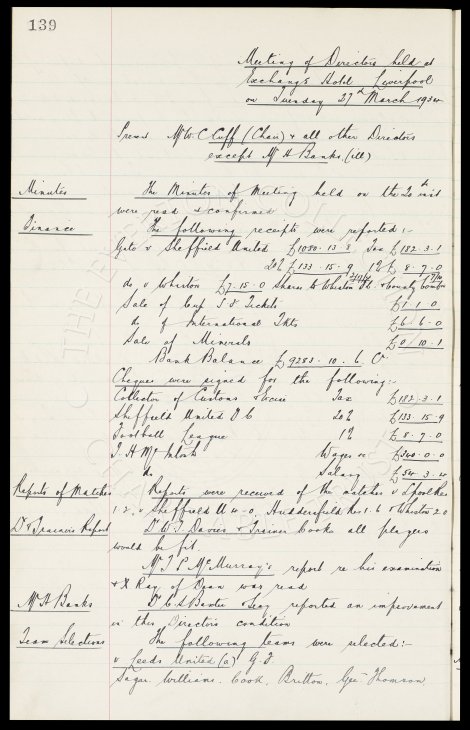 139
Meeting of Directors held at
Exchange Hotel Liverpool
on Tuesday 27th March 1934
Present Mr W. C. Cuff (Chair) & all other Directors
except Mr H Banks (ill)
Minutes
The Minutes of Meeting held on the 20th inst
were read & confirmed
Finance
The following receipts were reported :-
Gate v Sheffield United £1080. 13. 8 Tax £182. 3. 1
20% £133. 15. 9 1% £8. 7. 0
do v Whiston £7. 15. 0 Shares to Whiston & County Combn
Sale of Cup S F Tickets £1. 1. 0
do of International Tkts £6. 6. 0
Sale of Minerals £0. 10. 1
Bank Balance £9283. 10. 6 Cr
Cheques were signed for the following:-
Collector of Customs & Excise Tax £182. 3. 1
Sheffield United F C 20% £133. 15. 9
Football League 1% £8. 7. 0
T. H. McIntosh Wages £340. 0. 0
do Salary £54. 3. 4
Reports of Matches
Reports were received of the matches v
1-2, v Sheffield U 4-0, Huddersfield Res 1-6 & Whiston 2-0
Dr & Trainers Report
Dr W J Davies & Trainer Cooke all players
would be fit.
Mr T P McMurray's report re his examination
& X Ray of Dean was read
Mr H Banks
Dr C S Baxter reported an improvement
in this Directors condition
Team Selections
The following teams were selected:-
v Leeds United (a) G.F
Sagar Williams. Cook. Britton. Gee Thomson